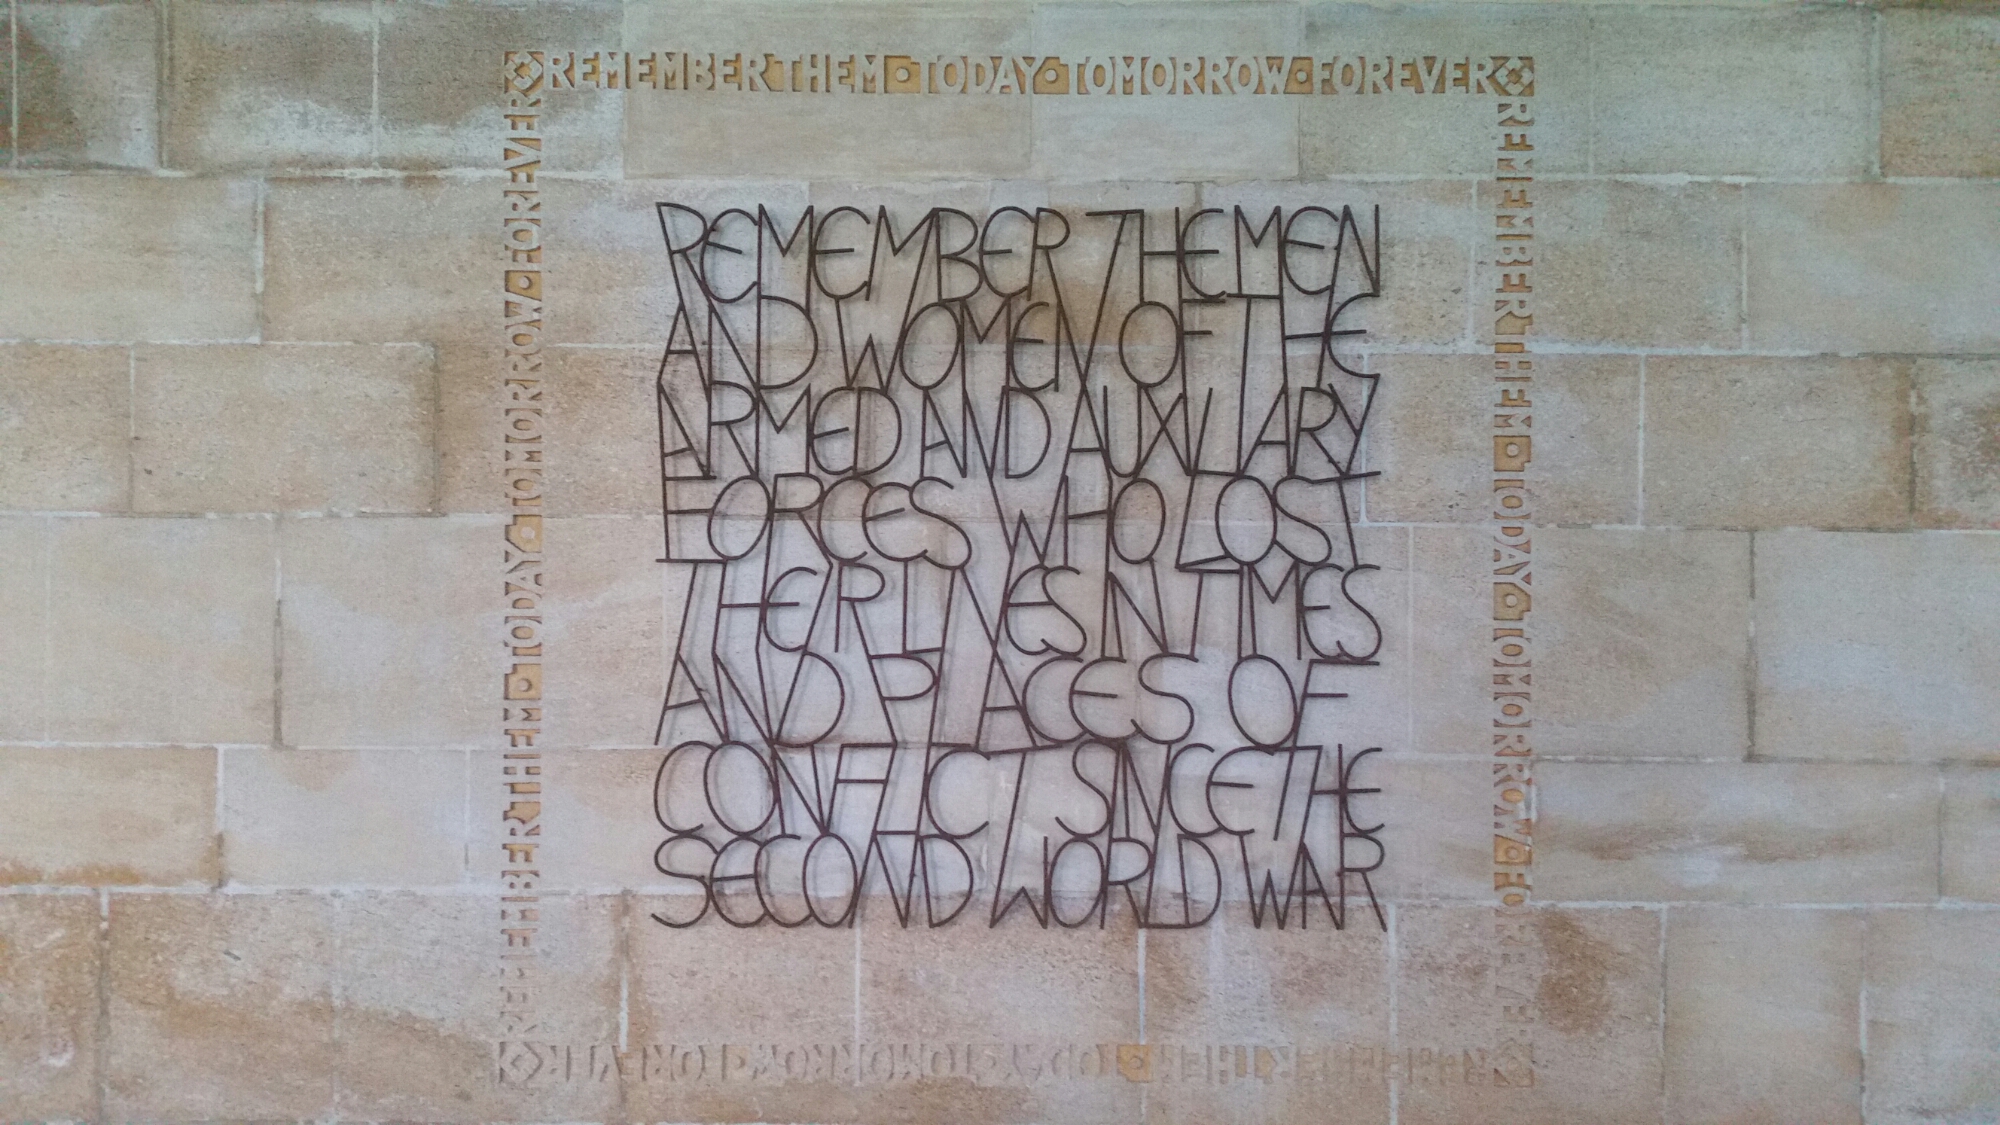 REMEMBER THEM · TODAY · TOMORROW · FOREVER
REMEMBER THE MEN
AND WOMEN OF THE
ARMED AND AUXILIARY
FORCES WHO LOST
THEIR LIVES IN TIMES
AND PLACES OF
CONFLICT SINCE THE
SECOND WORLD WAR
REMEMBER THEM · TODAY · TOMORROW · FOREVER
REMEMBER THEM · TODAY · TOMORROW · FOREVER
REMEMBER THEM · TODAY · TOMORROW · FOREVER